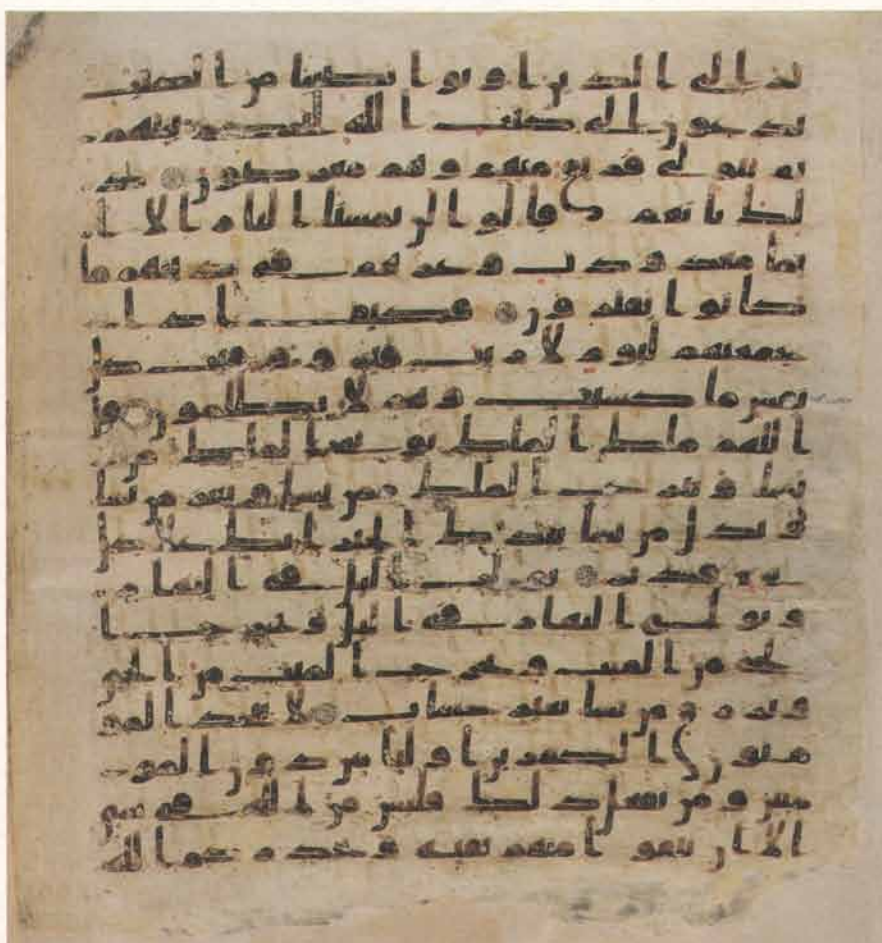 تر الى الذين اوتوا نصيبا من الكتب
يدعون الى كتب الله ليحكم بينهم
ثم يتولى فريق منهم وهم معرضون ذ
لك بانهم قالوا لن تمسنا النار الا ايا
ما معدودت وغرهم في دينهم ما
كانوا يفترون فكيف اذا
جمعنهم ليوم لا ريب فيه ووفيت كل
نفس ما كسبت وهم لا يظلمون قل
اللهم ملك الملك توتي الملك من
تشا وتنزع الملك ممن تشا وتعز من تشا
وتذل من تشا بيدك الخير انك على كل
شي قدير تولج اليل في النهار
وتولج النهار في اليل وتخرج ا
لحي من الميت وتخرج الميت من الحي
وترزق من تشا بغير حساب لا يتخذ المو
منون الكفرين اوليا من دون المو
منين ومن يفعل ذلك فليس من الله في شي
الا ان تتقوا منهم تقية ويحذركم الله